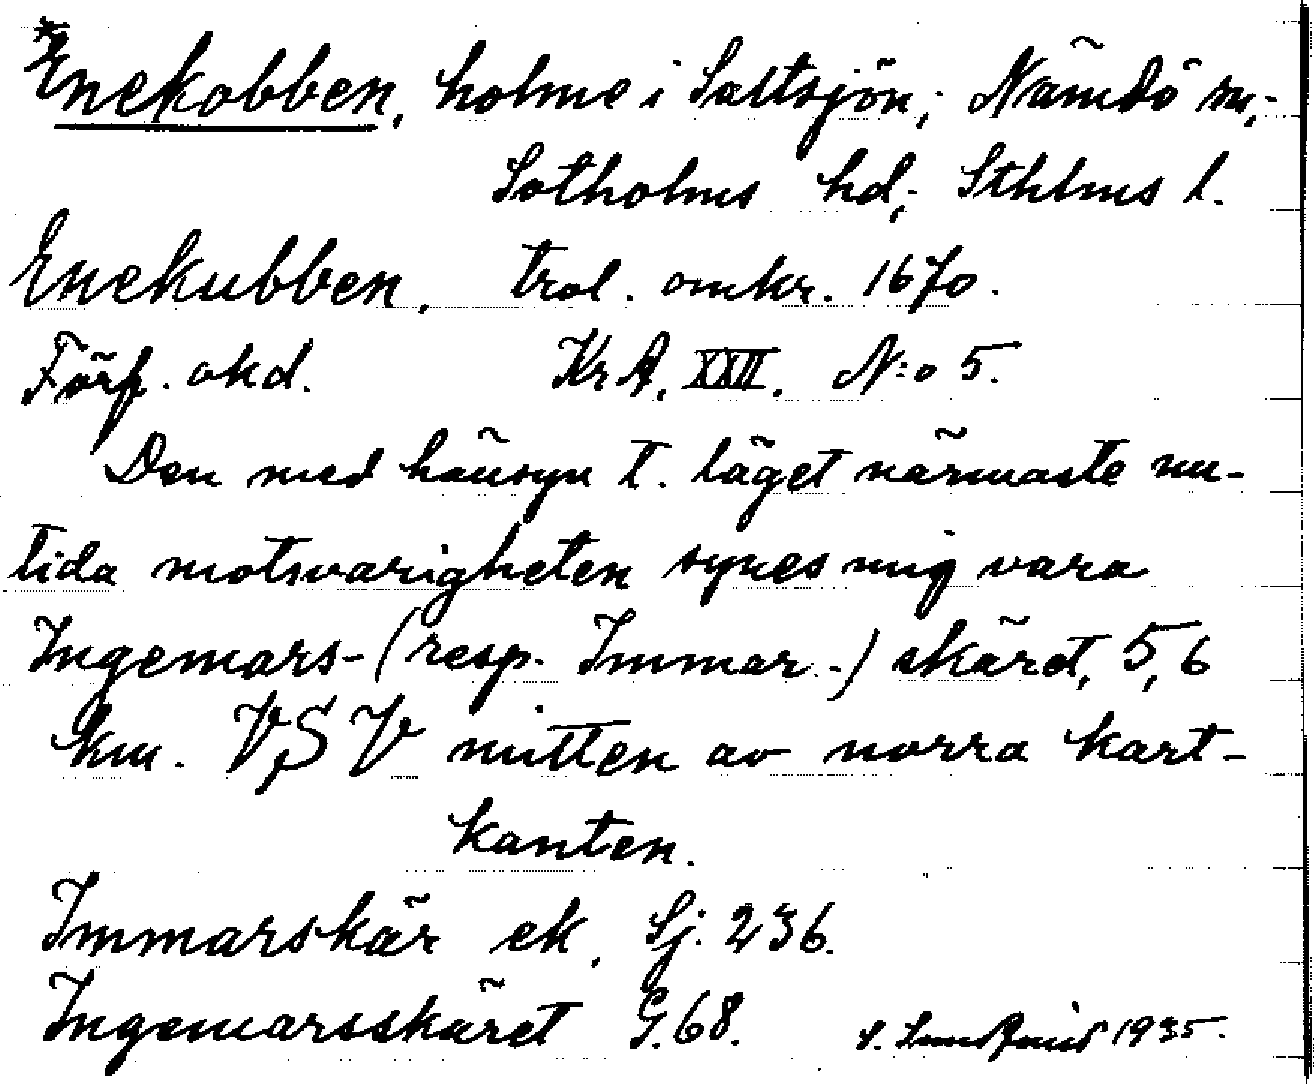 *Enekobben, holme i Saltsjön; Nämdö sn,
Sotholms hd; Sthlms l.
Enekubben. trol. omkr. 1670.
Förf. okd. KrA. XXII. N:o 5.
Den med hänsyn t. läget närmaste nu-
tida motsvarigheten synes mig vara
Ingemars- (resp. Immar-) skäret, 5,6
km. VSV mitten av norra kart-
kanten.
Immarskär ek. Sj. 236.
Ingemarsskäret G. 68. 1935.